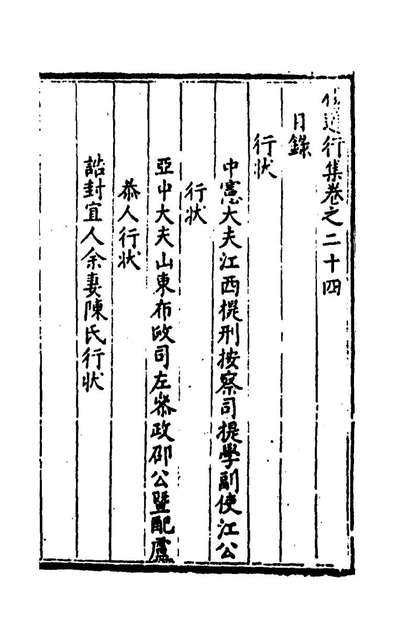 行集卷之二十四
目錄
行状
中憲大夫江西提刑按察司提學副使江公
行状
亞中大夫山東布政司左叅政邵公暨配盧
恭人行状
誥封宜人余妻陳氏行状